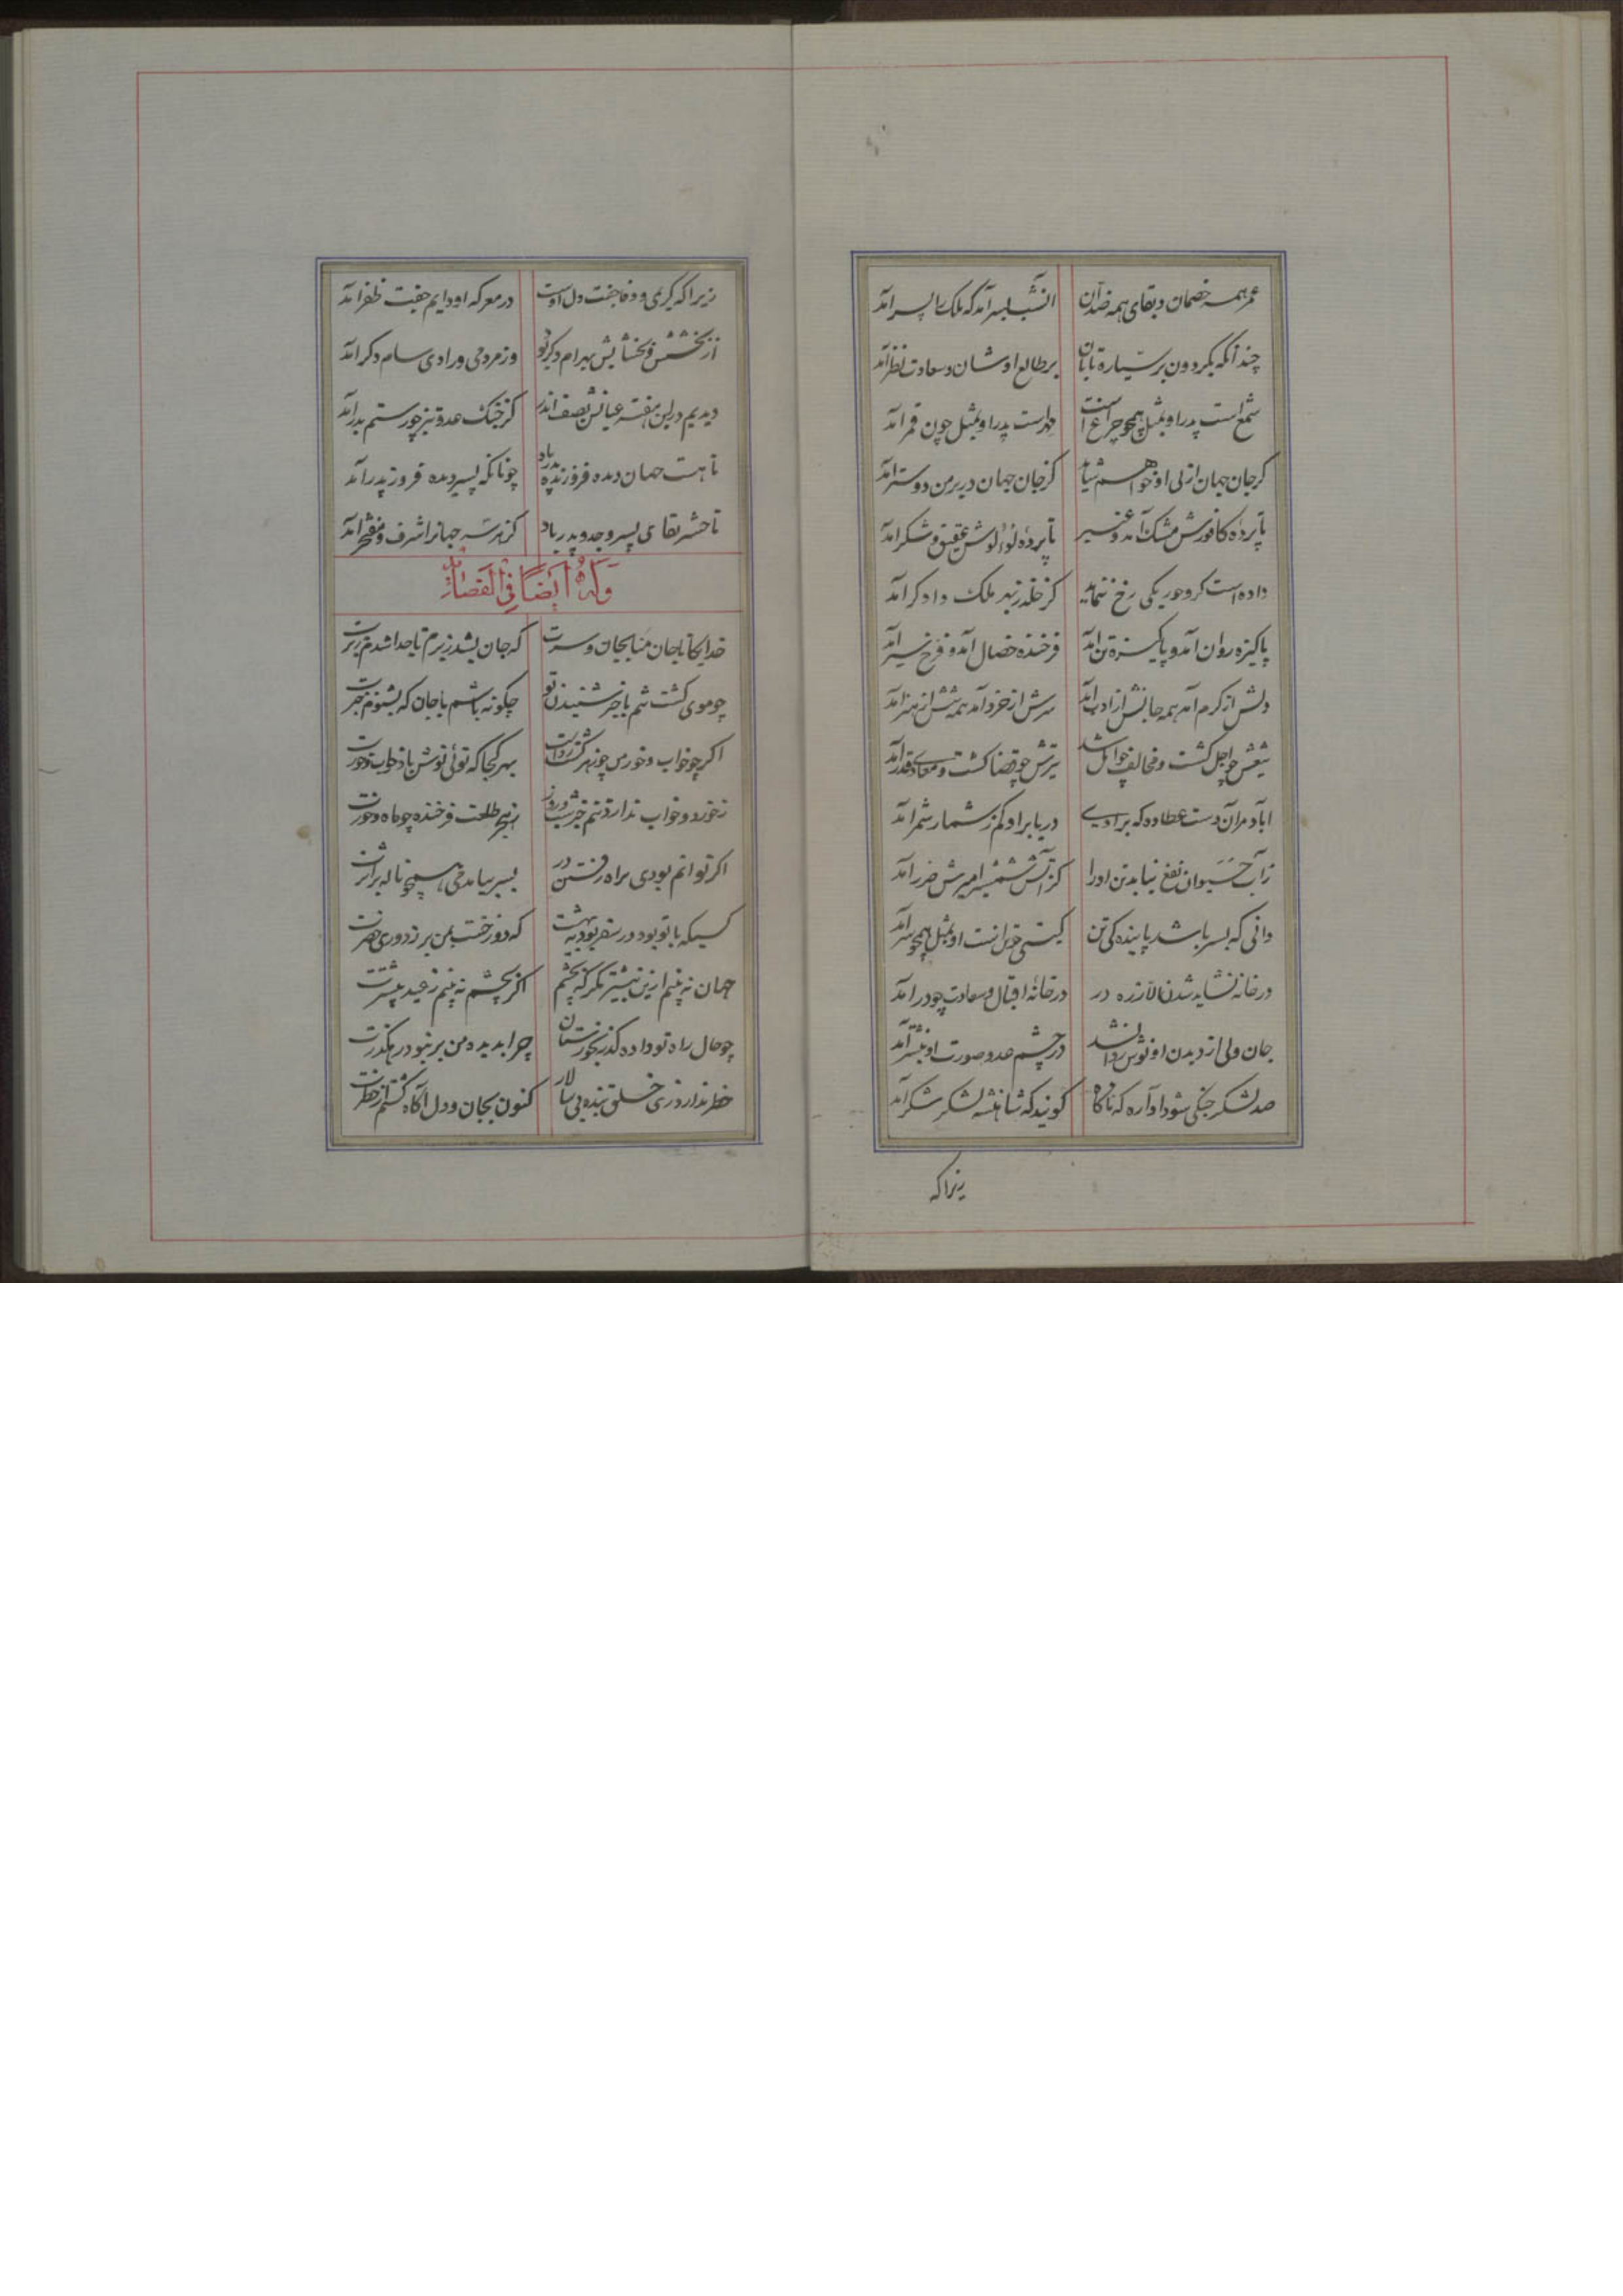 عمر همه خصمان و بقای همه ضدان آنشب بسر آمد که ملک را پسر آمد
چندانکه بگردون بر سیاره تابان بر طالع او شان و سعادت نظر آمد
شمع است پدر او بمثل همچو چراغ است مهر است پدر او بمثل چون قمر آمد
گر جان جهان از پی او خواهم شاید کز جان جهان در بر من دوستر آمد
تا پرده کافورش مشک آمد و عنبر تا پرده لؤلوش عقیق و شکر آمد
داده است گرو حور یکی رخ ننماید کز خلد زبهر ملک دادگر آمد
پاکیزه روان آمد و پاکیزه تن آمد فرخنده خصال آمد و فرخ سیر آمد
دلش از کرم آمد همه جانش از ادب آمد سرش از خرد آمد همه تنش از هنر آمد
تیغش چو اجل گشت و مخالف چو امل شد تیرش چو قضا گشت و معادی قدر آمد
آباد مر آن دست عطا ده که بر او دریا بر او کم ز شمار شمر آمد
زآب حیوان نفع نیابد تن او را کز آتش شمشیر امیرش ضرر آمد
دانی که بسر باشد پاینده کی تن گیتی چو تن است او بمثل همچو سر آمد
در خانه نشاید شدن الا زره در در خانه اقبال و سعادت چو در آمد
جان ولی از دیدن او نوش روان شد در چشم عدو صورت او نیشتر آمد
صد لشکر جنگی شود آواره که ناگاه گویند که شاهنشه لشکر شکر آمد
زیراکه
زیرا که کریمی و وفا جفت دل اوست در معرکه او دایم جفت ظفر آمد
از بخشش و بخشایش بهرام دگر بو وز مردمی و رادی سام دگر آمد
دیدیم در این هفته عیانش بصف اندر کز جنگ عدو نیز چو رستم بدر آمد
تا هست جهان دیده فروزنده پدر باد چونانکه پسر دیده فروز پدر آمد
تا حشر بقای پسر و جد و پدر باد کز هر سه جهانرا شرف و مفتخر آمد
وله ایضا فی القصاید
خدایگانا جان منا بجان و سرت که جان بشد زبرم تا جدا شدم زبرت
چو موی گشت تنم باخبر شنیدن تو چگونه باشم با جان که بشنوم خبرت
اگر چو خواب و خورش چون هرگز روا نیست بهر کجا که توئی نوش باد خواب و خورت
زخورد و خواب ندارد تنم خبر شب و روز زهجر طلعت فرخنده چو ماه و خورت
اگر توانم بودی براه رفتن در بسر بیامدمی همچو ناله بر اثرت
کسیکه با تو بود در سفر بود به بهشت که دوزخست بمن بر ز دوری حضرت
جهان نه بینم ازین بیشتر مگر که بچشم اگر بچشم نه بینم زعید پیشترت
چو حال راه تو داده گذر بخوزستان چرا بدیده من بر نبود رهگذرت
خطر ندارد زی خلق بنده بی سالار کنون بجان و دل آگاه گشتم از خطرت